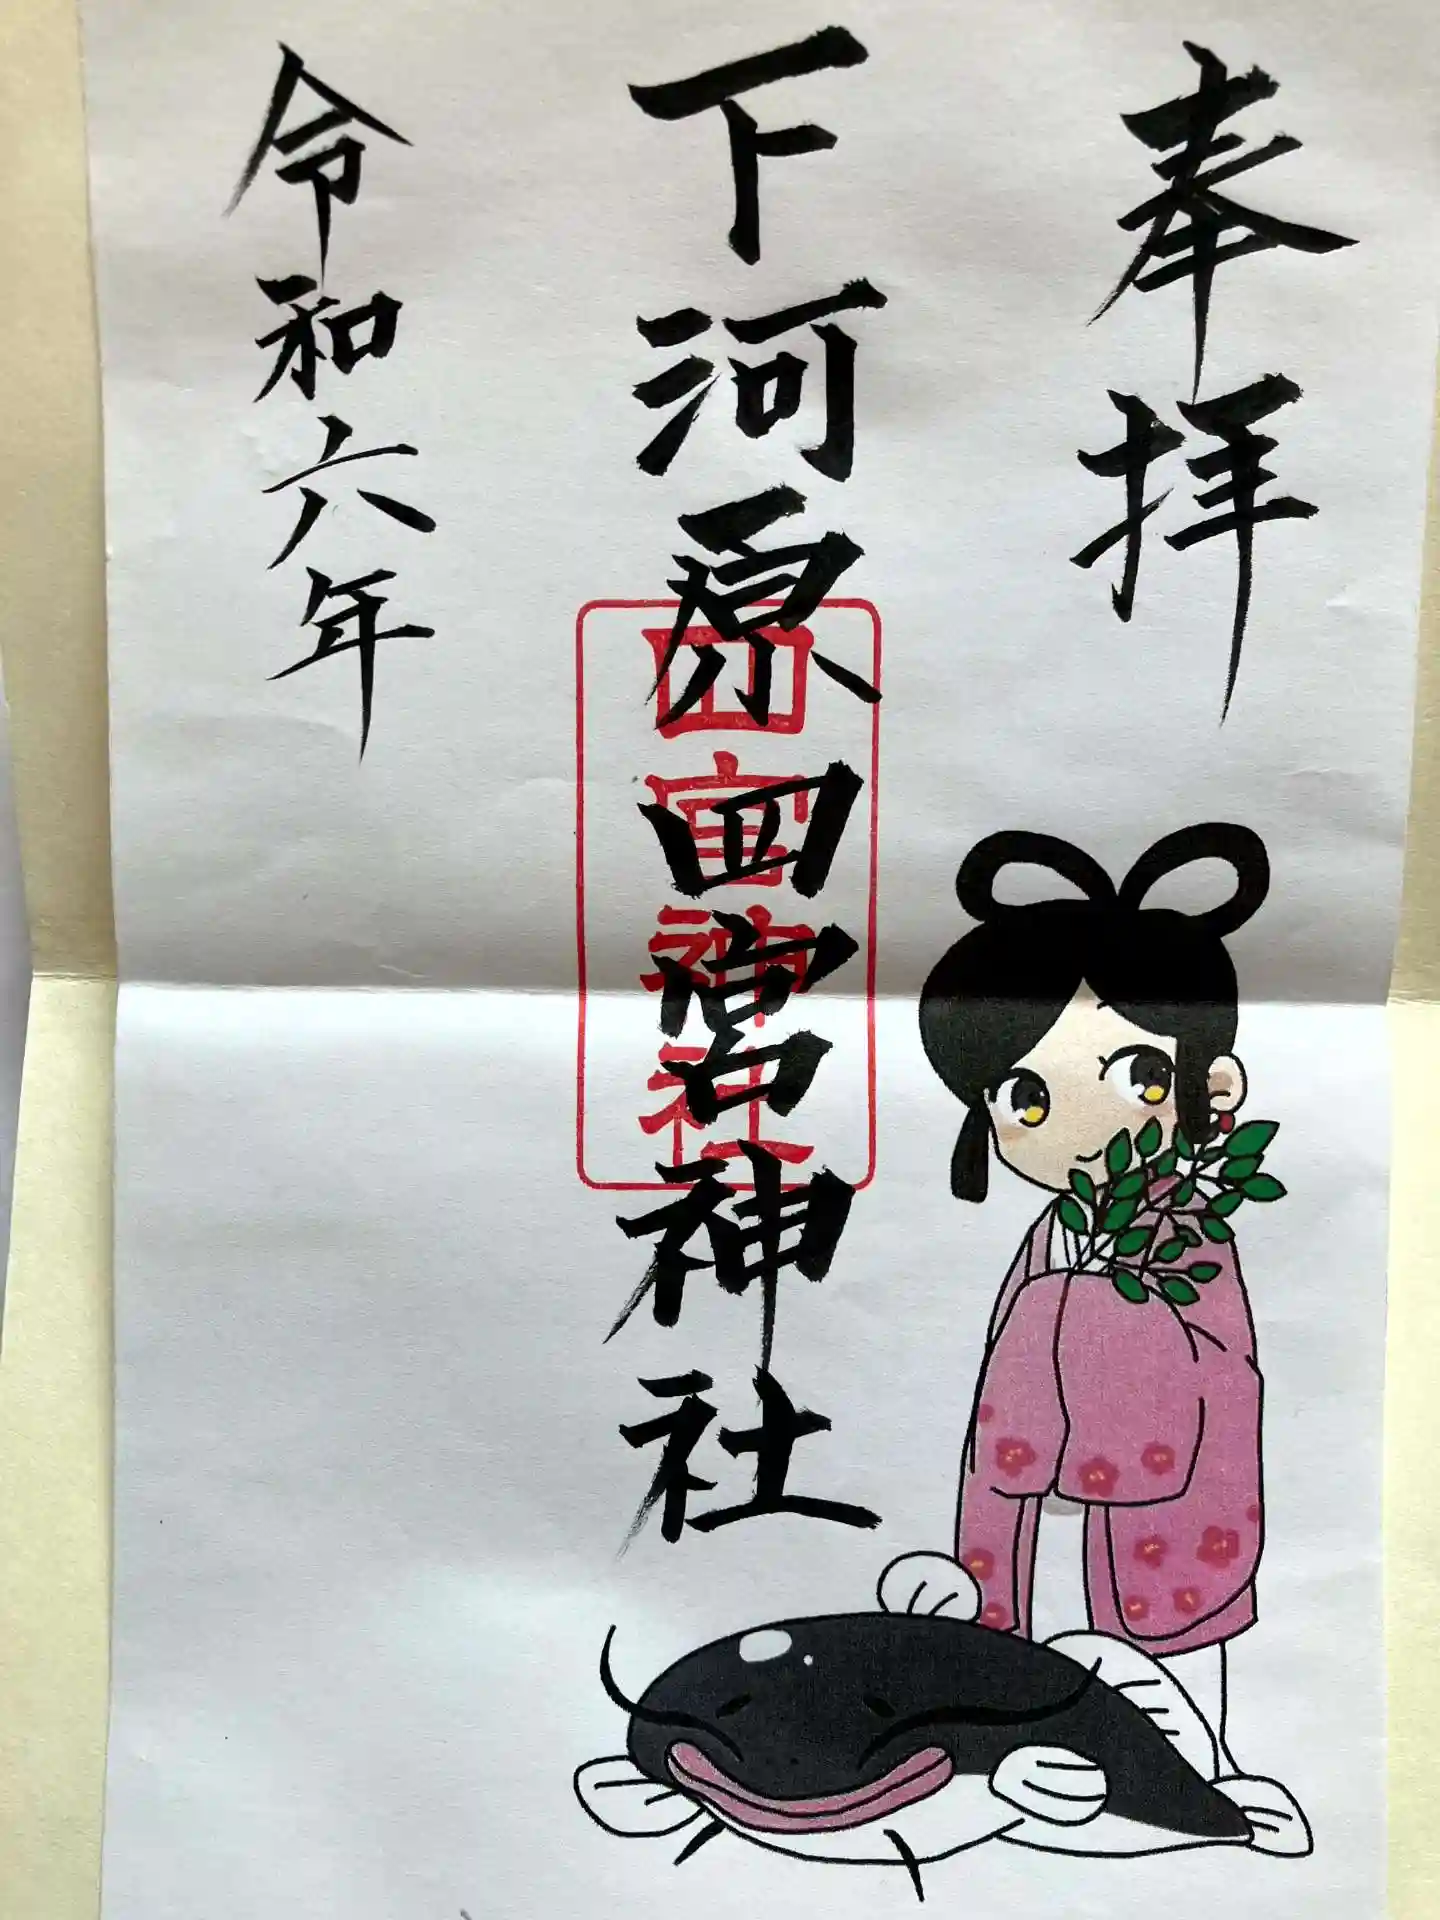 奉拝
下河原四宮神社
四宮神社
令和六年